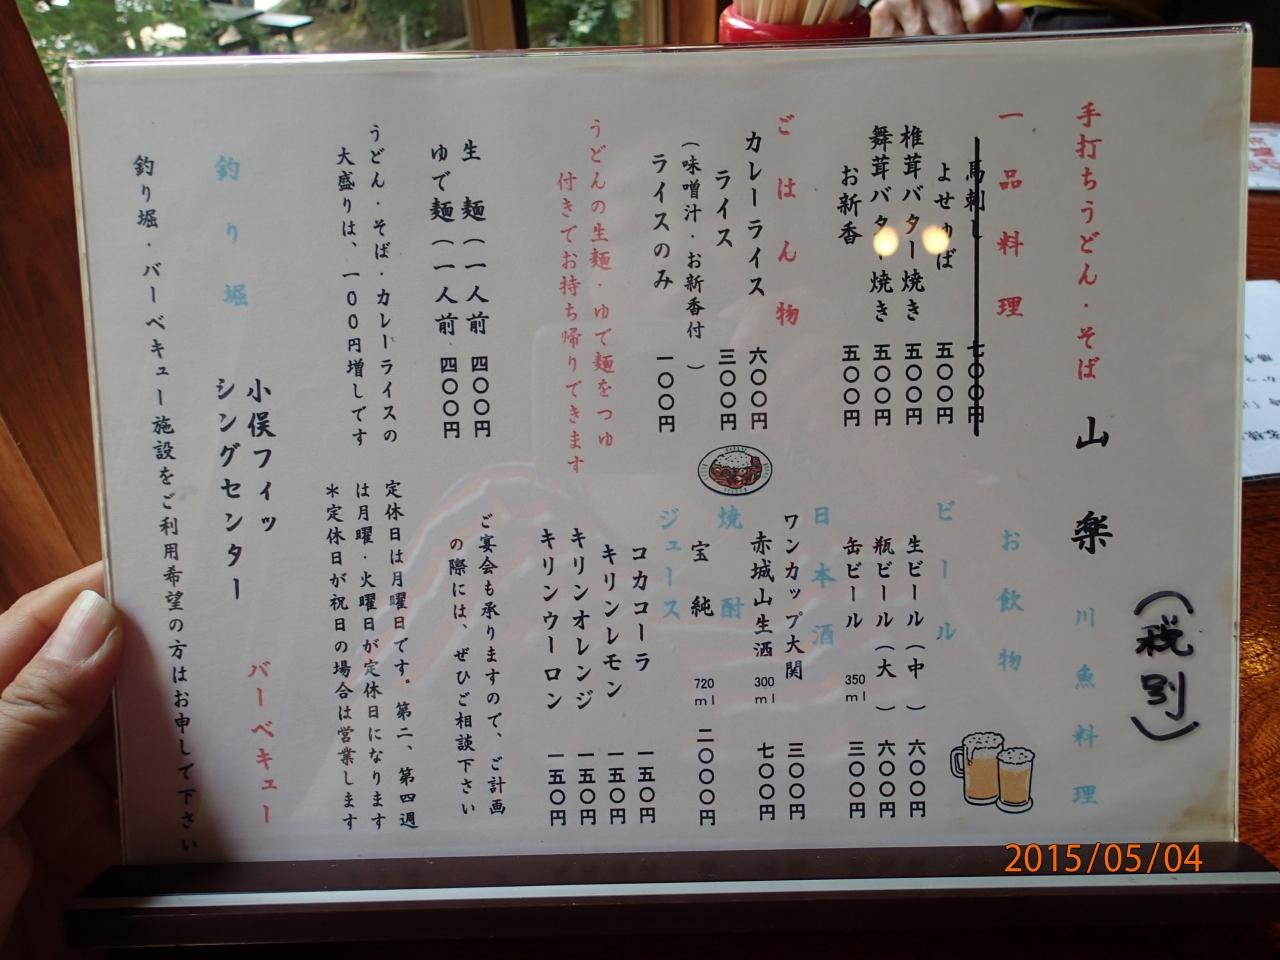 手打ちうどん・そば 山楽 川魚料理
（税別）
一品料理
馬刺し 七〇〇円
よせゆば 五〇〇円
椎茸バター焼き 五〇〇円
舞茸バター焼き 五〇〇円
お新香 五〇〇円
ごはん物
カレーライス 六〇〇円
ライス 三〇〇円
（味噌汁・お新香付）
ライスのみ 一〇〇円
うどんの生麺・ゆで麺をつゆ
付きでお持ち帰りできます
生 麺（一人前 四〇〇円
ゆで麺（一人前 四〇〇円
うどん・そば・カレーライスの
大盛りは、一〇〇円増しです
お飲物
ビール
生ビール（中） 六〇〇円
瓶ビール（大） 六〇〇円
缶ビール 350ml 三〇〇円
日本酒
ワンカップ大関 三〇〇円
赤城山生酒 300ml 七〇〇円
焼酎
宝 純 720ml 二〇〇〇円
ジュース
コカコーラ 一五〇円
キリンレモン 一五〇円
キリンオレンジ 一五〇円
キリンウーロン 一五〇円
ご宴会も承りますので、ご計画
の際には、ぜひご相談下さい
定休日は月曜日です。第二、第四週
は月曜・火曜日が定休日になります
＊定休日が祝日の場合は営業します
釣り堀 小俣フィッシングセンター バーベキュー
釣り堀・バーベキュー施設をご利用希望の方はお申して下さい
2015/05/04